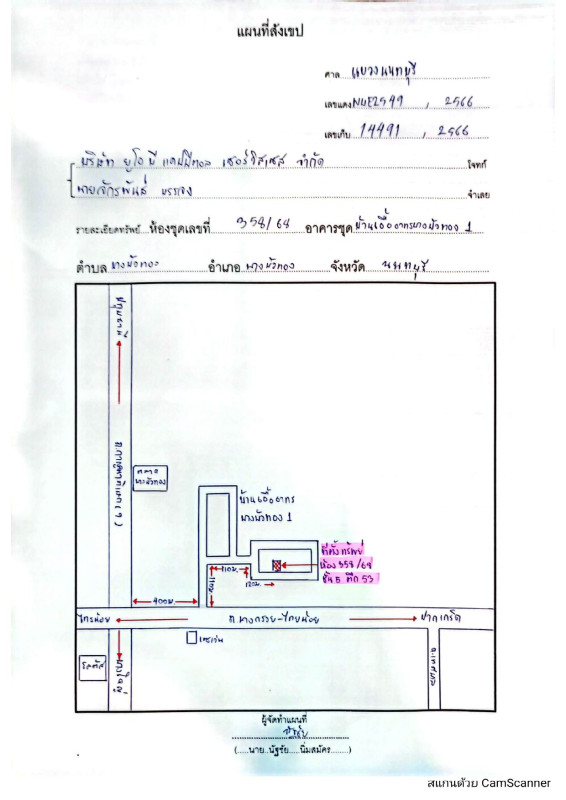 แผนที่สังเขป
ศาล แขวงนนทบุรี
เลขแดง ผบE2599 , 2566
เลขเก็บ 14491 , 2566
บริษัท ยูโอบี แคปปิตอล เซอร์วิสเซส จำกัด โจทก์
นายจักรพันธ์ บรรจง จำเลย
รายละเอียดทรัพย์ ห้องชุดเลขที่ 358/68 อาคารชุด บ้านเอื้ออาทรบางบัวทอง 1
ตำบล บางบัวทอง อำเภอ บางบัวทอง จังหวัด นนทบุรี
ปทุมธานี
ถ.กาญจนาภิเษก (9)
ตลาด
บางบัวทอง
บ้านเอื้ออาทร
บางบัวทอง 1
ที่ตั้งทรัพย์
ห้อง 358/68
ชั้น 5 ตึก 53
110ม.
120ม.
110ม.
400ม.
ไทรน้อย
ถ.บางกรวย-ไทรน้อย
ปากเกร็ด
เซเว่น
โลตัส
บางใหญ่
ผู้จัดทำแผนที่
(.....นาย..นัฐชัย.....นิ่มสมัคร........)
สแกนด้วย CamScanner